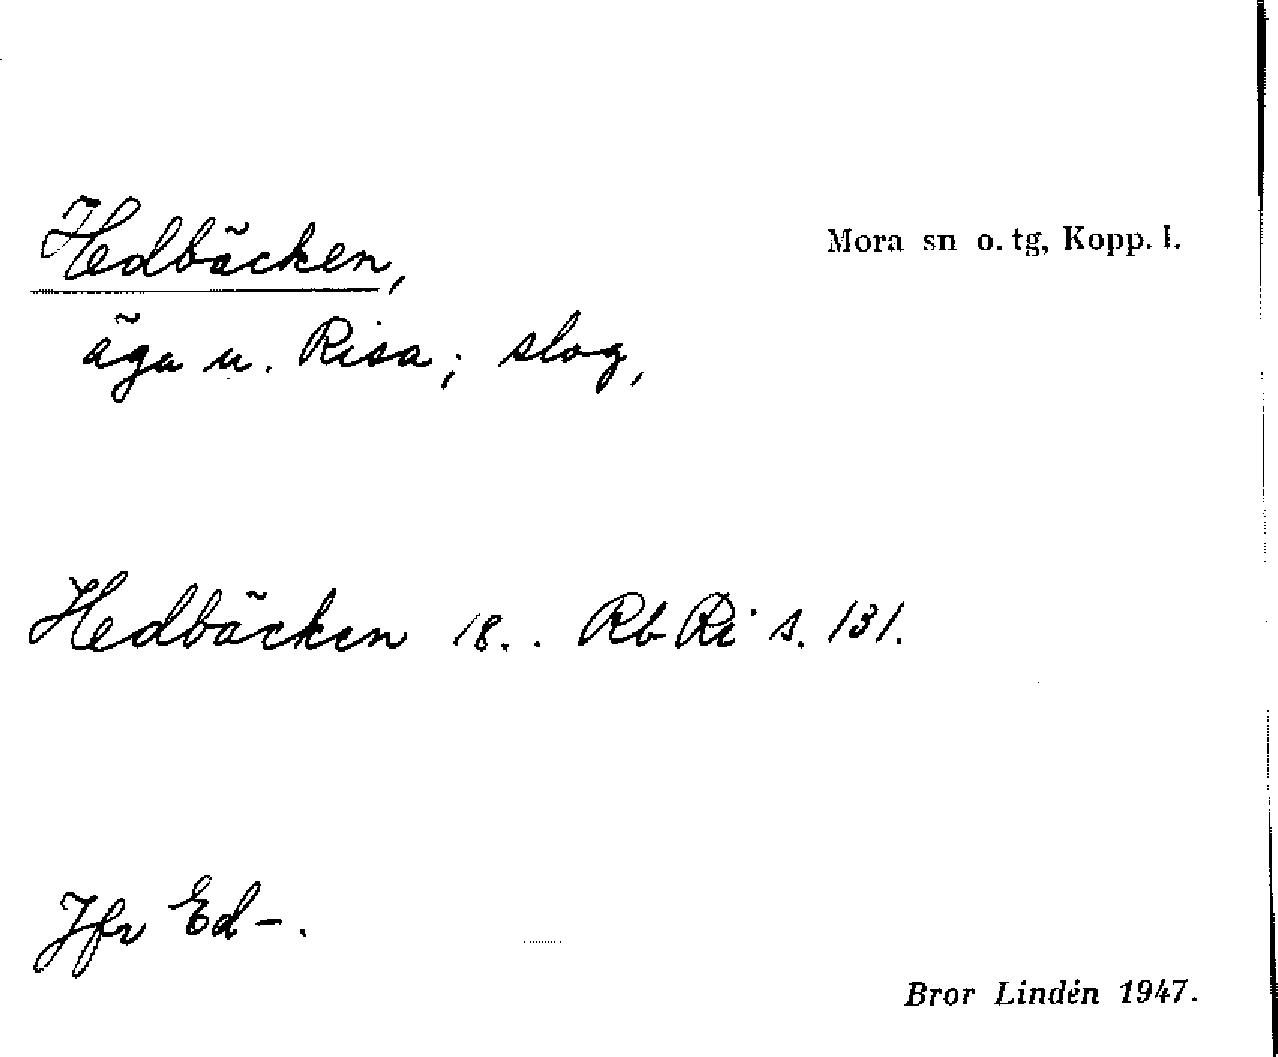 Hedbäcken,
Mora sn o. tg, Kopp. l.
äga u. Risa; slog,
Hedbäcken 18.. Rb Ri s. 131.
Jfr Ed-.
Bror Lindén 1947.